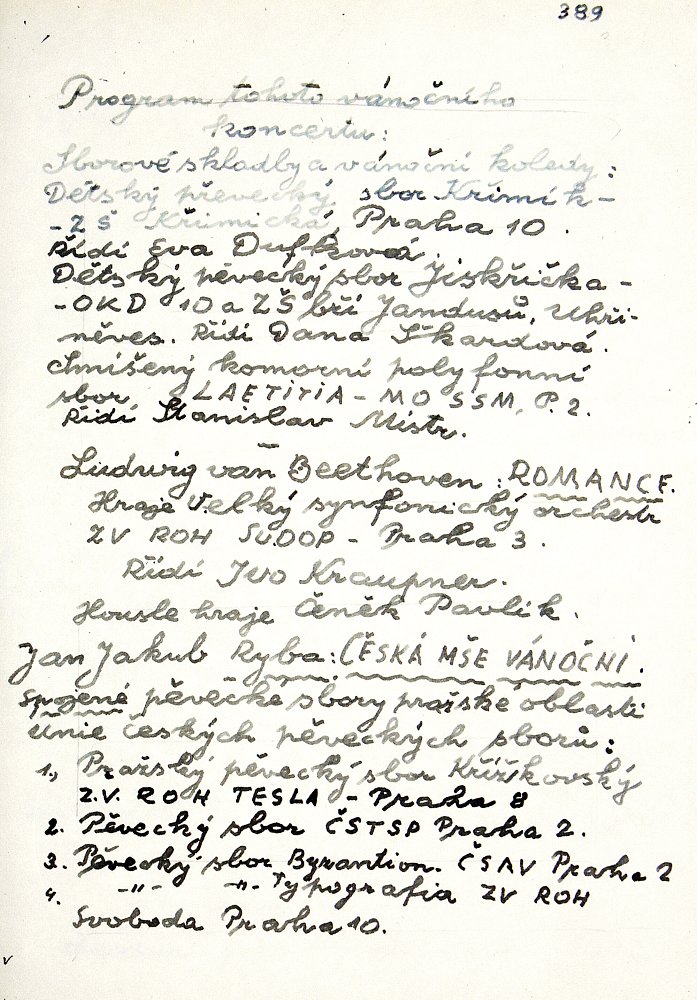 389
Program tohoto vánočního
koncertu:
Sborové skladby a vánoční koledy:
Dětský pěvecký sbor Křimík-
-ZŠ Křimická, Praha 10.
Řídí Eva Dufková.
Dětský pěvecký sbor Jiskřička -
-OKD 10 a ZŠ bří Jandusů, Uhři-
něves. Řídí Dana Škardová.
Smíšený komorní polyfonní
sbor LAETITIA - MO SSM, P. 2.
Řídí Stanislav Mistr.
Ludwig van Beethoven: ROMANCE F.
Hraje Velký symfonický orchestr
ZV ROH SUDOP - Praha 3.
Řídí Ivo Kraupner.
Housle hraje Čeněk Pavlík.
Jan Jakub Ryba: ČESKÁ MŠE VÁNOČNÍ.
Spojené pěvecké sbory pražské oblasti
Unie českých pěveckých sborů:
1., Pražský pěvecký sbor Křížkovský
Z.V. ROH TESLA - Praha 8
2. Pěvecký sbor ČSTSP Praha 2.
3. Pěvecký sbor Byzantion. ČSAV Praha 2
4. -"- -"- Typografia ZV ROH
Svoboda Praha 10.
v